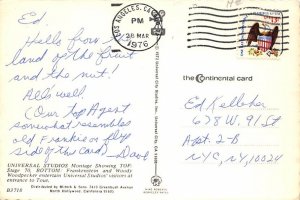 Ed,
Hello from the
land of the fruit
and the nut!
All's well
Our Top Agent
somewhat resembles
old Frankie on (My
side of the card) Dave
UNIVERSAL STUDIOS Montage Showing TOP:
Stage 70, BOTTOM: Frankenstein and Woody
Woodpecker entertain Universal Studios' visitors at
entrance to Tour.
Distributed by Mitock & Sons 7410 Greenbush Avenue
North Hollywood, California 91605
B3718
LOS ANGELES, CA
PM
28 MAR
1976
the Continental card
Ed Kelleher
678 W. 91 St
Apt. 2-B
NYC, NY, 10024